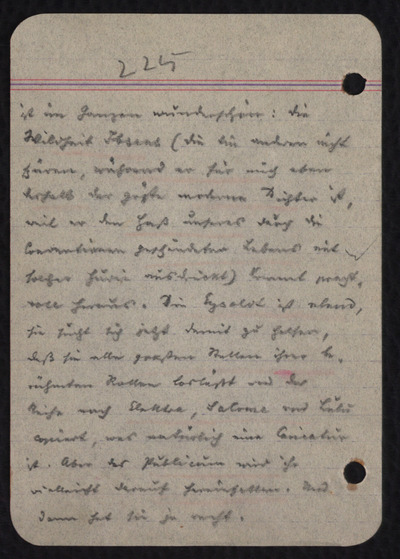 225
ist im Ganzen wunderschön: die
Wildheit Ibsens (die die anderen nicht
hören, während er für mich eben
deshalb der größte moderne Dichter ist,
weil er den Haß unseres durch die
Conventionen geschändeten Lebens mit
solcher Furie ausdrückt) kommt pracht-
voll heraus. Die Eysoldt ist elend,
sie sucht sich jetzt damit zu helfen,
daß sie alle großen Stellen ihrer be-
rühmten Rollen losläßt und der
Reihe nach Elektra, Salome und Lulu
copiert, was natürlich eine Caricatur
ist. Aber das Publicum wird ihr
vielleicht darauf hereinfallen. Und
dann hat sie ja recht.